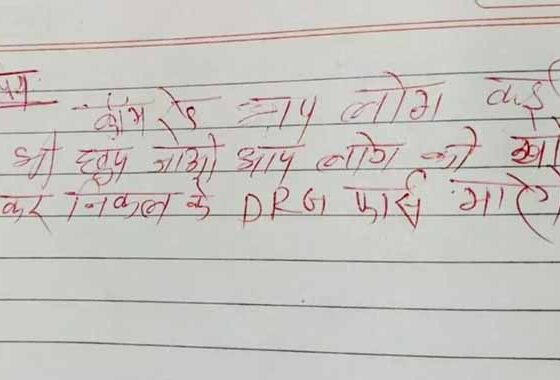 कामरेड आप लोग कई
भी छुप जाओ आप लोग को खो
कर निकल के DRG फोर्स मारेग